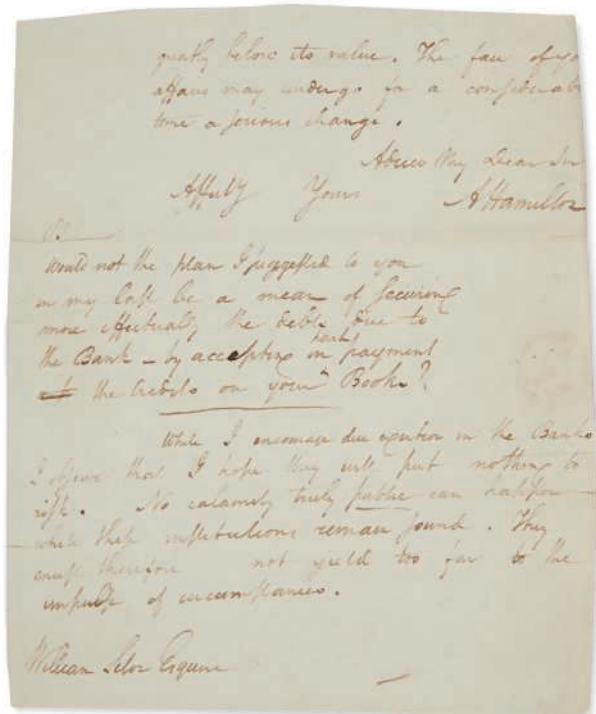 greatly below its value. The face of yo
affairs may undergo for a considerab
time a serious change.
Adieu My Dear Sir
Affecly Yours A Hamilton
PS
Would not the plan I suggested to you
in my last be a mean of securing
more effectually the debts due to
the Bank – by accepting in part payment
the Credits on your Books?
While I encourage due exertion in the Banks
I observe that I hope they will put nothing to
risk. No calamity truly public can happen
while these institutions remain sound. They
must therefore not yield too far to the
impulse of circumstances.
William Seton Esquire